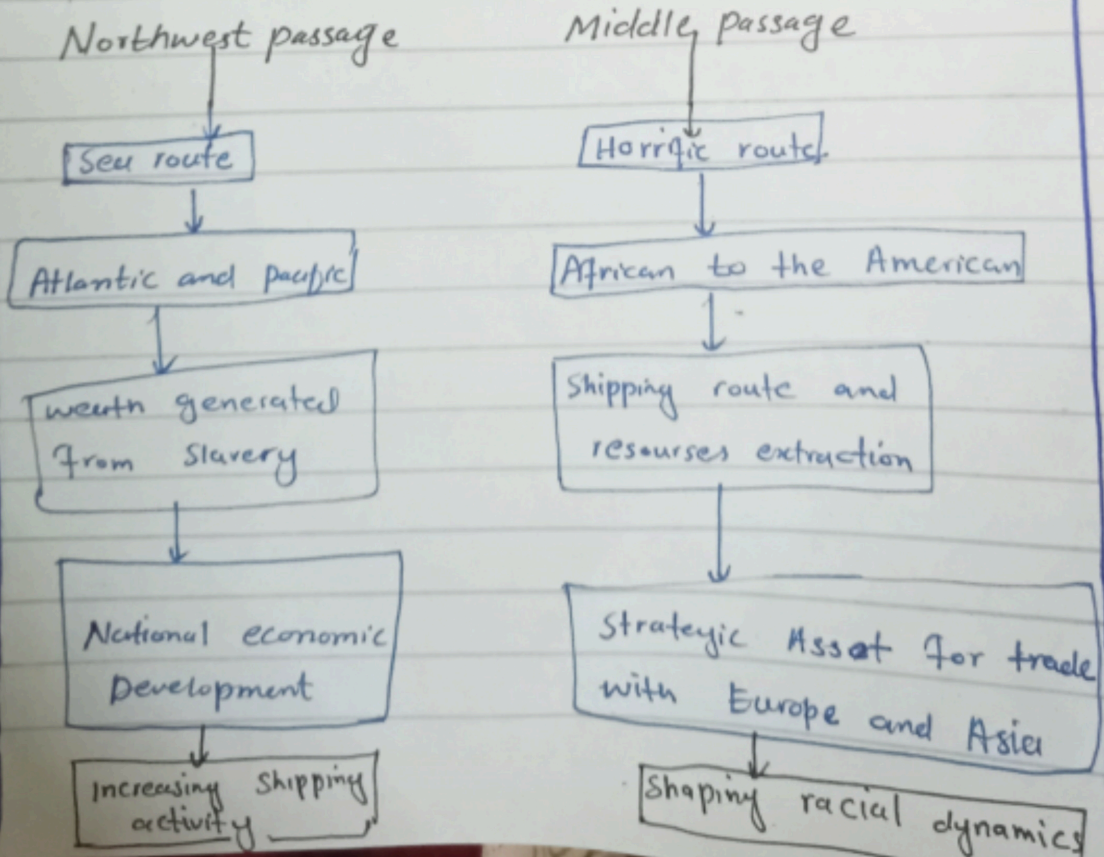 Northwest passage
Sea route
Atlantic and pacific
wealth generated
from Slavery
National economic
Development
Increasing Shipping
activity
Middle passage
Horrific route
African to the American
Shipping route and
resourses extraction
Strategic Asset for trade
with Europe and Asia
Shaping racial dynamics